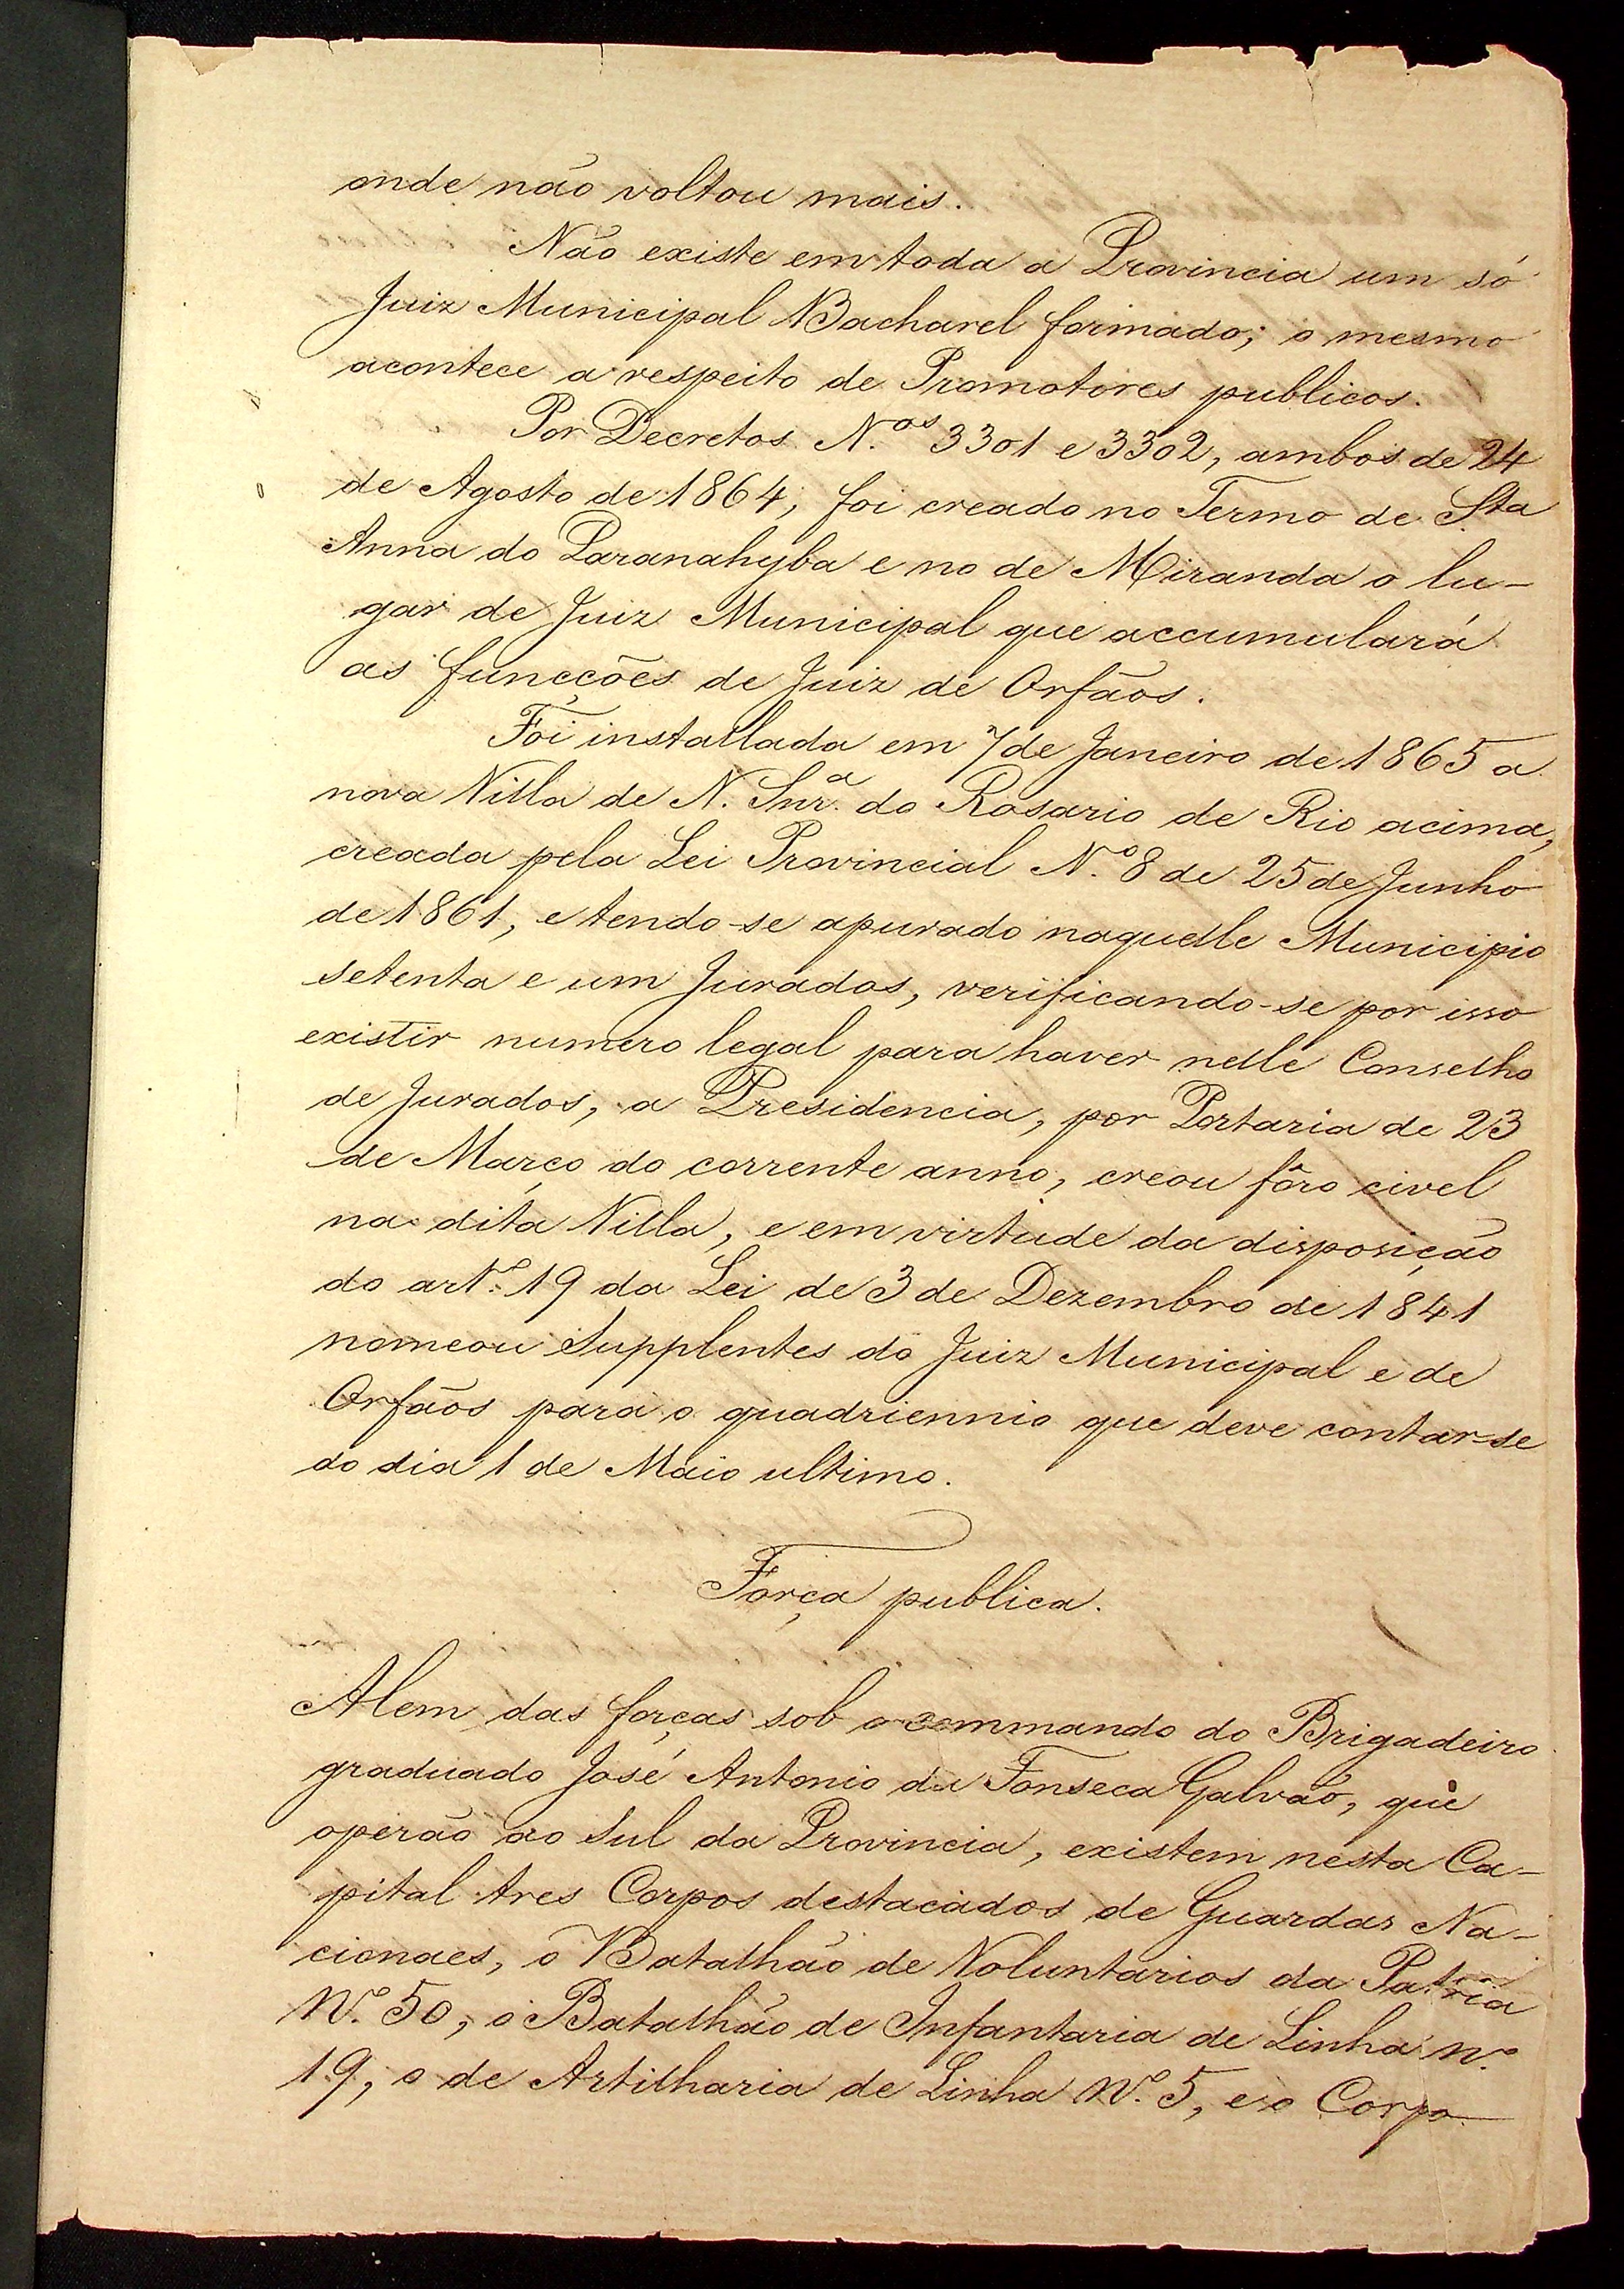 onde não voltou mais.
Não existe em toda a Provincia um só
Juiz Municipal Bacharel formado; o mesmo
acontece a respeito de Promotores publicos.
Por Decretos N.os 3301 e 3302, ambos de 24
de Agosto de 1864, foi creado no Termo de Sta
Anna do Paranahyba e no de Miranda o lu-
gar de Juiz Municipal que accumulará
as funcções de Juiz de Orfãos.
Foi installada em 7 de Janeiro de 1865 a
nova Villa de N. Snr.a do Rosario de Rio acima,
creada pela Lei Provincial N.o 8 de 25 de Junho
de 1861, e tendo-se apurado naquelle Municipio
setenta e um Jurados, verificando-se por isso
existir numero legal para haver nelle Conselho
de Jurados, a Presidencia, por Portaria de 23
de Março do corrente anno, creou fôro civel
na dita Villa, e em virtude da disposição
do art.o 19 da Lei de 3 de Dezembro de 1841
nomeou Supplentes do Juiz Municipal e de
Orfãos para o quadriennio que deve contar-se
do dia 1 de Maio ultimo.
Força publica.
Alem das forças sob o commando do Brigadeiro
graduado José Antonio da Fonseca Galvão, que
operão ao Sul da Provincia, existem nesta Ca-
pital tres Corpos destacados de Guardas Na-
cionaes, o Batalhão de Voluntarios da Patria
N.o 50, o Batalhão de Infantaria de Linha n.o
19, o de Artilharia de Linha N.o 5, e o Corpo